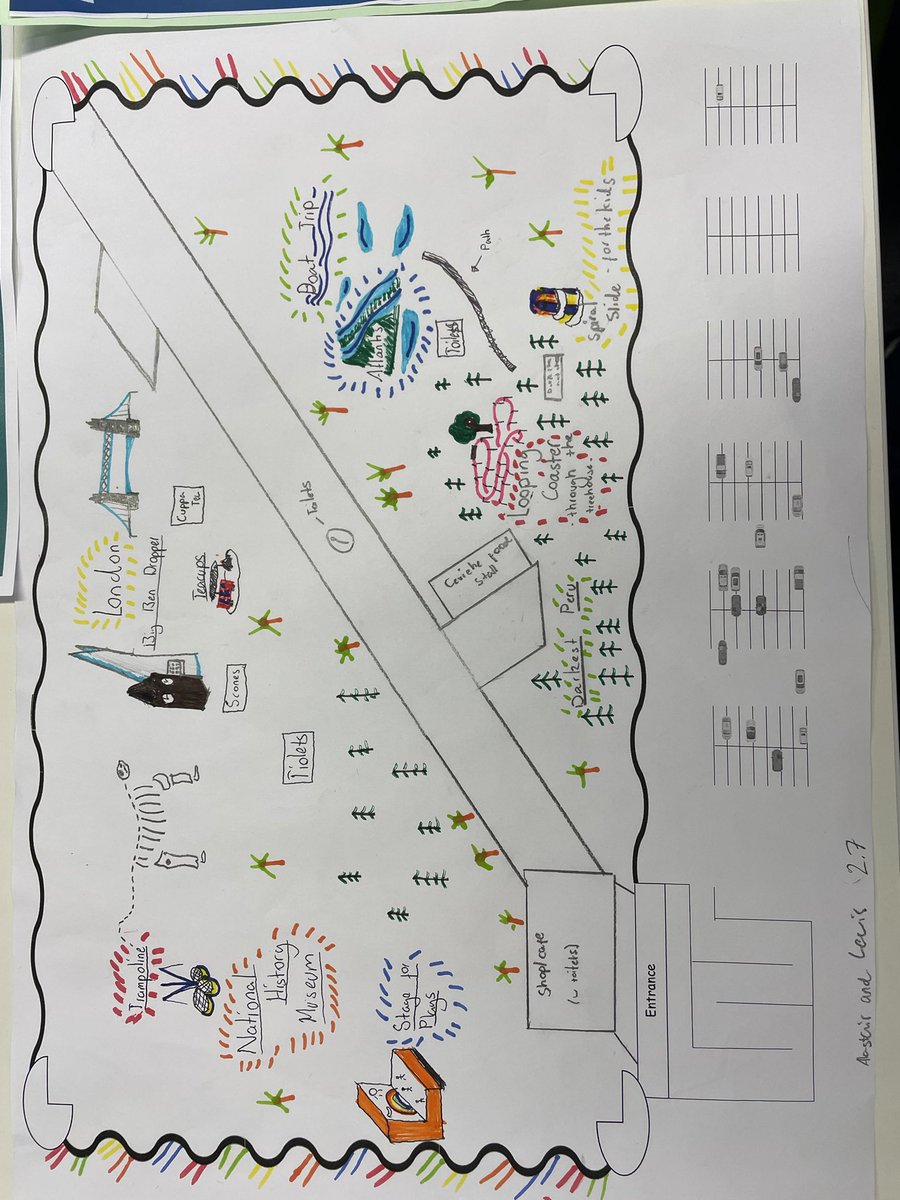 Trampoline
London
Big Ben Dropper
Cuppa
Tea
Teacups
Scones
National
History
Museum
Tiolets
Boat Trip
Toilets
1
Atlantis
Stage for
Plays
Toilets
Path
Ceviche Food
Stall
Looping
Coaster
through the
treehouse
Darkest Peru
Spiral
Slide - for the kids
Shop/cafe
toilets)
Entrance
Alastair and Lewis 2.7